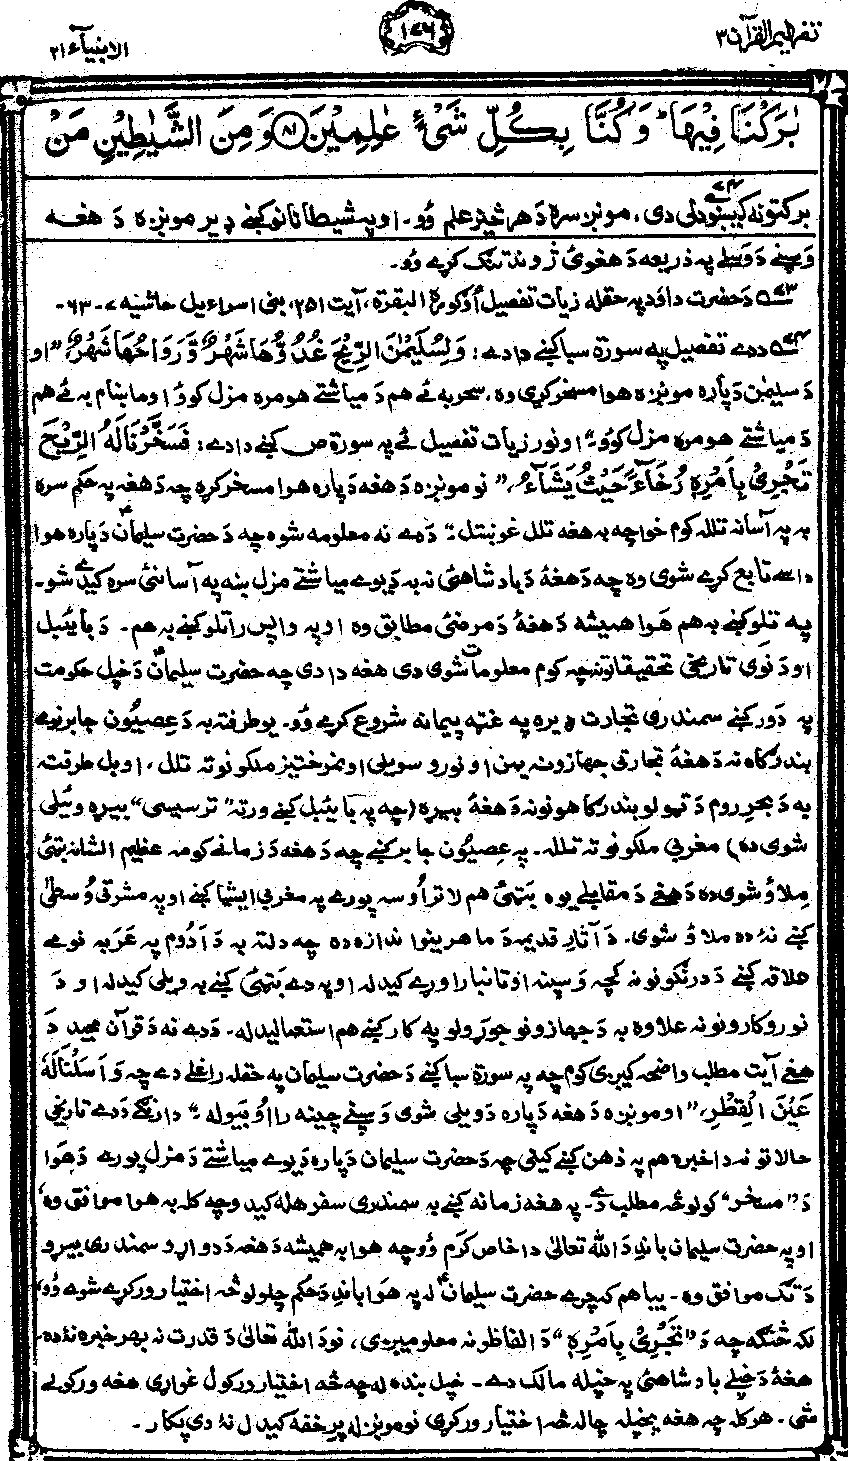 تفهیم القرآن ۳
۱۷۶
الانبیآء ۲۱
بٰرَكْنَا فِيْهَا ؕ وَكُنَّا بِكُلِّ شَيْءٍ عٰلِمِيْنَ ﴿۸۱﴾ وَمِنَ الشَّيٰطِيْنِ مَنْ
برکتونه کیښودلی دی، مونږ سره د هر څیز علم وُو۔ او په شیطانانو کښے ډیر مونږه د هغه
۷۴
وَسپنے دَ وسیلے په ذریعه دَ هغوئ ژوند تنګ کړے وُو۔
۷۳ دَ حضرت داؤد په حقله زیات تفصیل اوګوره البقرة، آیت ۲۵۱، بنی اسراءیل حاشیه ۷-۶۳-
۷۴ ددے تفصیل په سورة سبا کښے دا دے: وَلِسُلَيْمٰنَ الرِّيْحَ غُدُوُّهَا شَهْرٌ وَّرَوَاحُهَا شَهْرٌ ”او
دَ سلیمٰن دَپاره مونږه هوا مسخر کړی وه، سحر به ئے هم دَ میاشتے هومره مزل کوو او ماښام به ئے هم
دَ میاشتے هومره مزل کوُو“ او نور زیات تفصیل ئے په سورة صٓ کښے دا دے: فَسَخَّرْنَا لَهُ الرِّيْحَ
تَجْرِيْ بِاَمْرِهٖ رُخَآءً حَيْثُ يَشَآءُ، ”نو مونږه دَ هغه دَپاره هوا مسخر کړه چه دَ هغه په حکم سره
به په آسانه تلله کوم خوا چه به هغه تلل غوښتل“ دَدے نه معلومه شوه چه دَ حضرت سلیمانؑ دَپاره هوا
داسے تابع کړے شوی وه چه دَ هغهٔ دَ بادشاهئ نه به دَ یوے میاشتے مزل ښه په آسانئ سره کیدے شو۔
په تلو کښے به هم هَوا همیشه دَ هغهٔ دَ مرضئ مطابق وه او په واپس راتلو کښے به هم۔ دَ بائیبل
او دَ نَوی تاریخی تحقیقاتو نه چه کوم معلومات شوی دی هغه دا دی چه حضرت سلیمانؑ دَ خپل حکومت
په دَور کښے سمندری تجارت ډیره په غټه پیمانه شروع کړے وُو۔ یو طرف ته به دَ عِصیُون جابر نومے
بندرګاه نه دَ هغهٔ تجارتی جهازونه یمن او نورو سویلی او نمرختیز ملکونو ته تلل، او بل طرف ته
به دَ بحرِ روم دَ ټولو بندرګاهونو نه دَ هغهٔ بیړه (چه په بائیبل کښے ورته ”ترسیسی“ بیړه وئیلی
شوی ده) مغربی ملکونو ته تلله۔ په عِصیُون جابر کښے چه دَ هغه دَ زمانے کومه عظیم الشانه بټئ
مِلاؤ شوی ده دَ هغے دَ مقابلے یوه بټئ هم لا تر اُوسه پورے په مغربی ایشیا کښے او په مشرقِ وُسطیٰ
کښے نهٔ ده ملاؤ شوی۔ دَ آثارِ قدیمه دَ ماهرینو اندازه ده چه دلته به دَ اَدُوم په عَرَبه نومے
علاقه کښے دَ درنګونو نه کچه وَسپنه او تانبا راوړے کیدله او په دے بټئ کښے به ویلی کیدله او دَ
نورو کارونو نه علاوه به دَ جهازونو جوړولو په کار کښے هم استعمالیدله۔ دَدے نه دَ قرآن مجید دَ
هغے آیت مطلب واضحه کیږی کوم چه په سورة سبا کښے دَ حضرت سلیمان په حقله راغلے دے چه وَاَسَلْنَا لَهٗ
عَيْنَ الْقِطْرِ، ”او مونږه دَ هغه دَپاره دَ ویلی شوی وَسپنے چینه را اُوبیوله“ دا رنګے دَدے تاریخی
حالاتو نه دا خبره هم په ذهن کښے کینی چه دَ حضرت سلیمان دَپاره دَ یوے میاشتے دَ مزل پورے دَ هَوا
دَ ”مسخر“ کولو څه مطلب دے۔ په هغه زمانه کښے به سمندری سفر هله کیدو چه کله به هوا موافق وه
او په حضرت سلیمان باندِ دَ اللّٰه تعالیٰ دا خاص کرم وُو چه هوا به همیشه دَ هغه دَ دواړو سمندری بیړو
دَ تګ موافق وه۔ بیا هم که چرے حضرت سلیمانؑ له په هَوا باندِ دَ حُکم چلولو څه اختیار ورکړے شوے وُو
لکه څنګه چه دَ ”تَجْرِيْ بِاَمْرِهٖ“ دَ الفاظو نه معلومیږی، نو دَ اللّٰه تعالیٰ دَ قدرت نه بهر خبره نهٔ ده،
هغهٔ دَ خپلے بادشاهئ په خپله مالک دے۔ خپل بنده له چه څه اختیار ورکول غواړی هغه ورکولے
شی۔ هرکله چه هغه پخپله چاله څه اختیار ورکړی نو مونږ له پرِ خفه کیدل نهٔ دی پکار۔